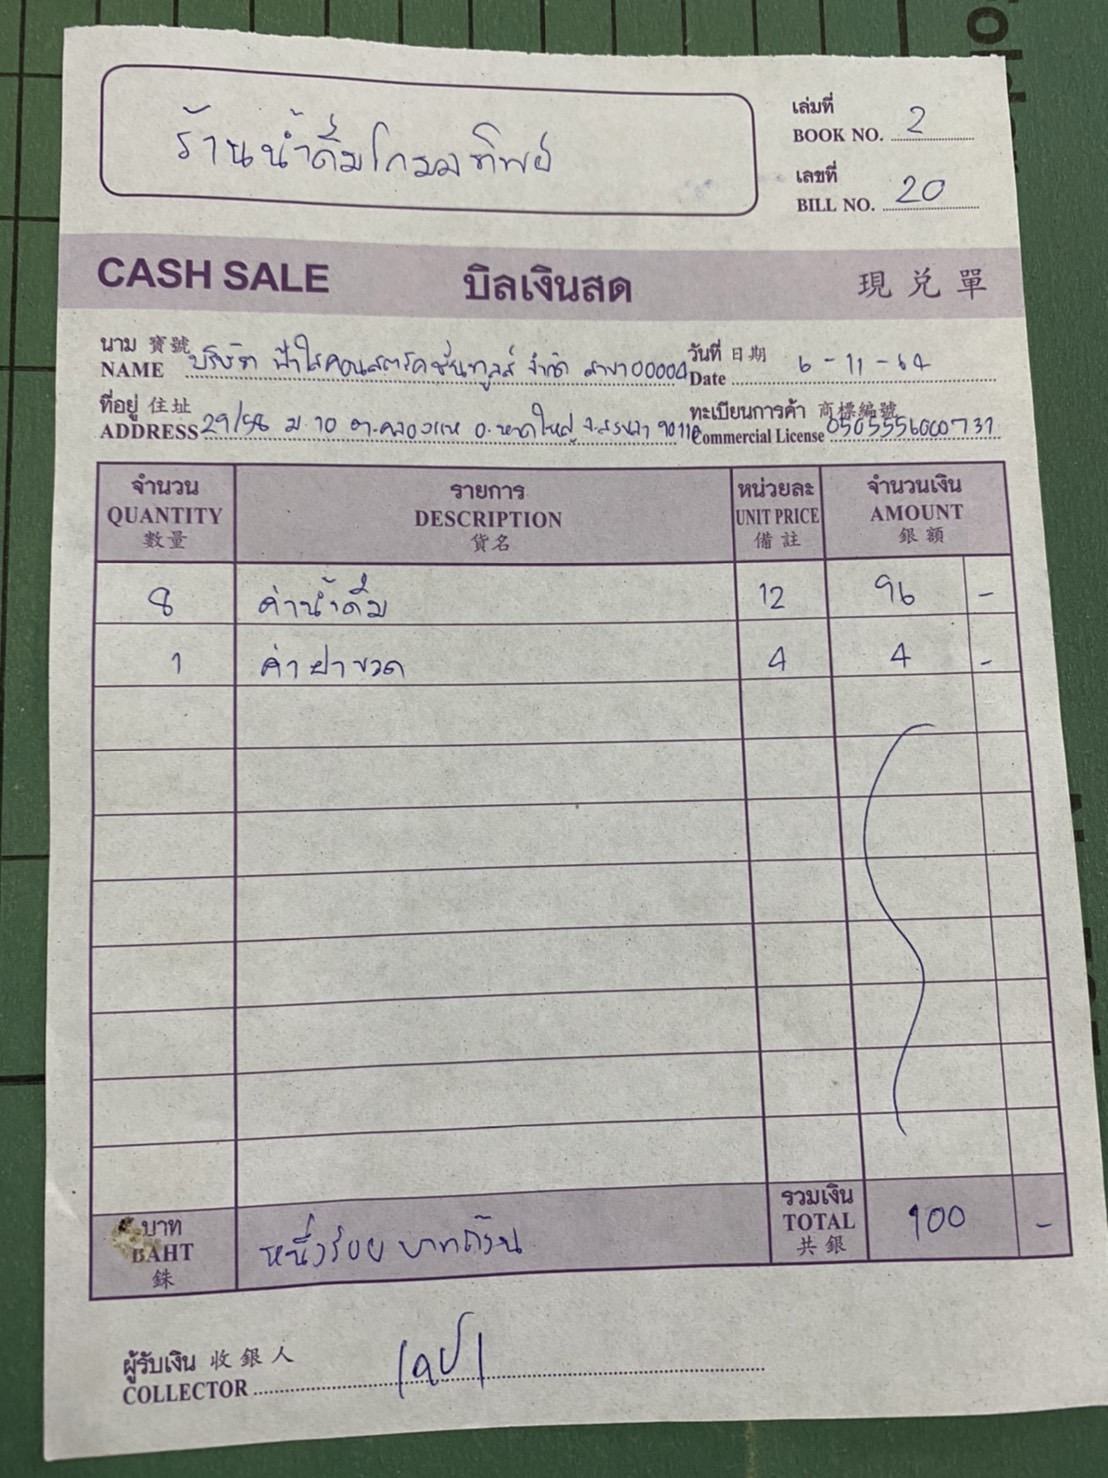 ร้านน้ำดื่มโกมลทิพย์
เล่มที่
BOOK NO. 2
เลขที่
BILL NO. 20
CASH SALE บิลเงินสด 現兌單
นาม 寶號
NAME บริษัท ฟ้าใสคอนสตรัคชั่นทูลส์ จำกัด สาขา 00004
วันที่ 日期
Date 6-11-64
ที่อยู่ 住址
ADDRESS 29/58 ม.10 ต.คลองแห อ.หาดใหญ่ จ.สงขลา 90110
ทะเบียนการค้า 商標編號
Commercial License 0505556000731
จำนวน รายการ หน่วยละ จำนวนเงิน
QUANTITY DESCRIPTION UNIT PRICE AMOUNT
數量 貨名 備註 銀額
8 ค่าน้ำดื่ม 12 96 -
1 ค่าฝาขวด 4 4 -
บาท
BAHT
銖
หนึ่งร้อยบาทถ้วน
รวมเงิน
TOTAL
共銀
100 -
ผู้รับเงิน 收銀人
COLLECTOR